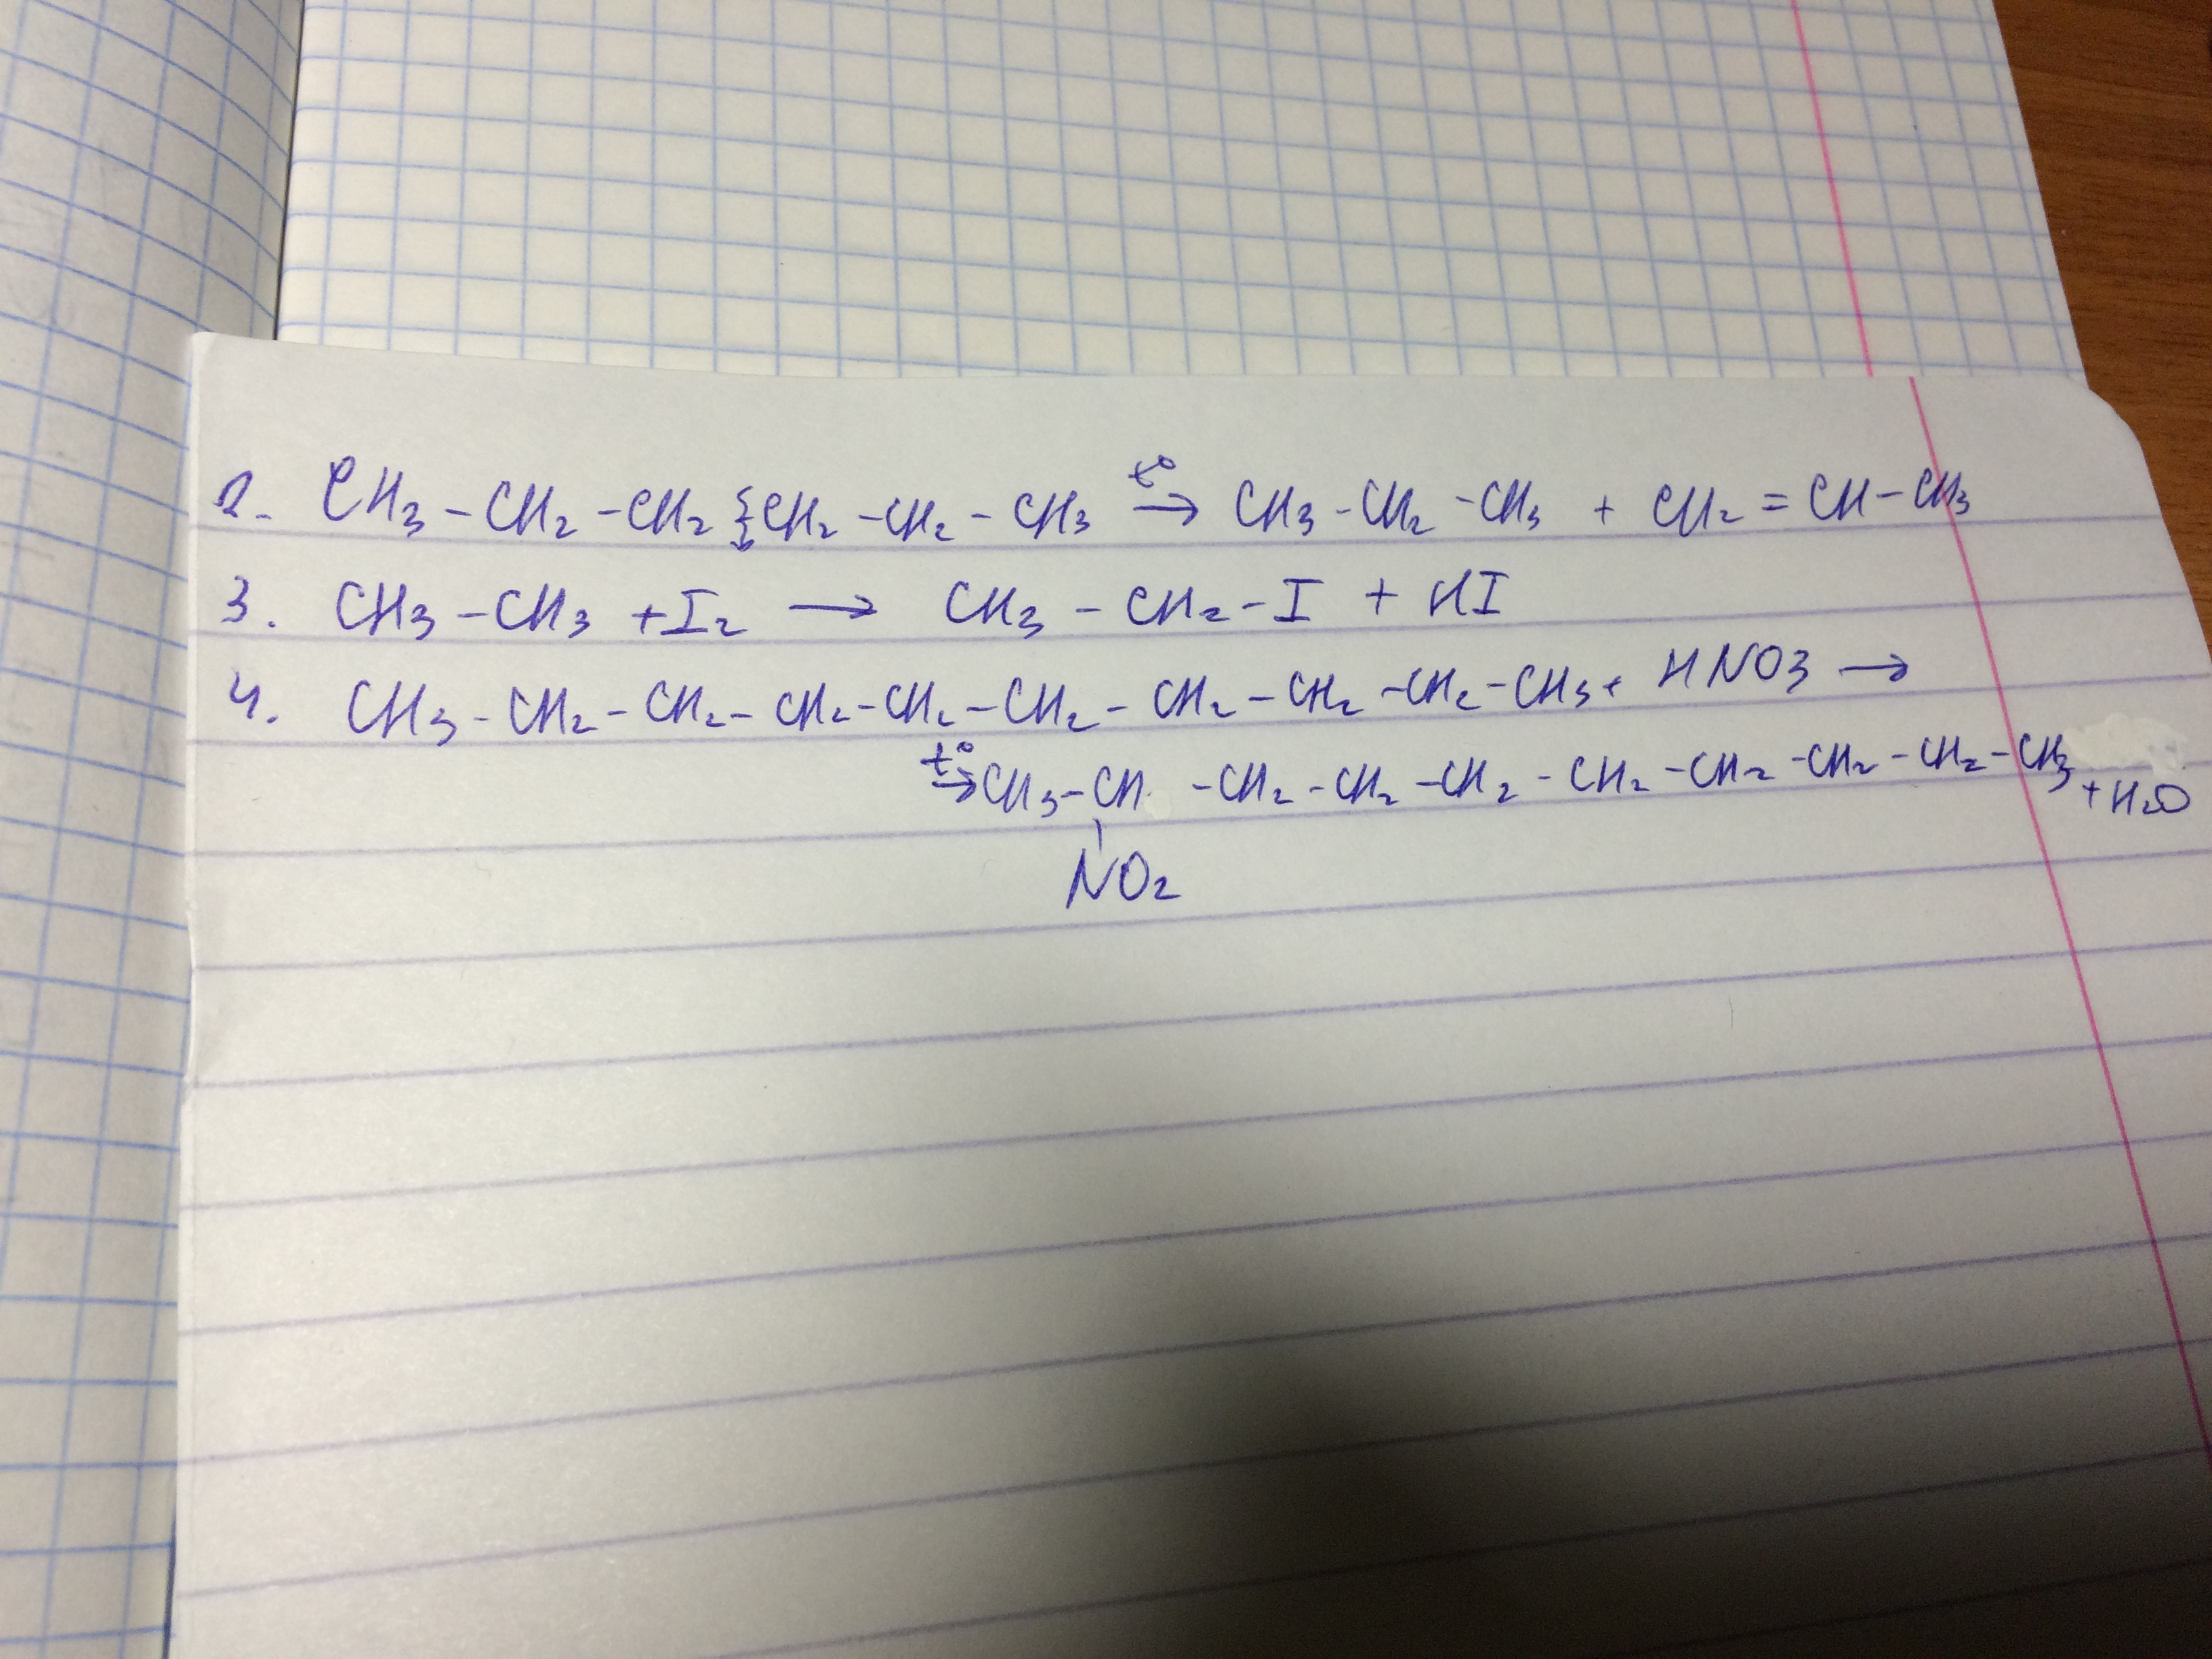 2. CH3 - CH2 - CH2 ⸾ CH2 - CH2 - CH3 t° → CH3 - CH2 - CH3 + CH2 = CH - CH3
3. CH3 - CH3 + I2 → CH3 - CH2 - I + HI
4. CH3 - CH2 - CH2 - CH2 - CH2 - CH2 - CH2 - CH2 - CH2 - CH3 + HNO3 →
t° → CH3 - CH - CH2 - CH2 - CH2 - CH2 - CH2 - CH2 - CH2 - CH3 + H2O
NO2